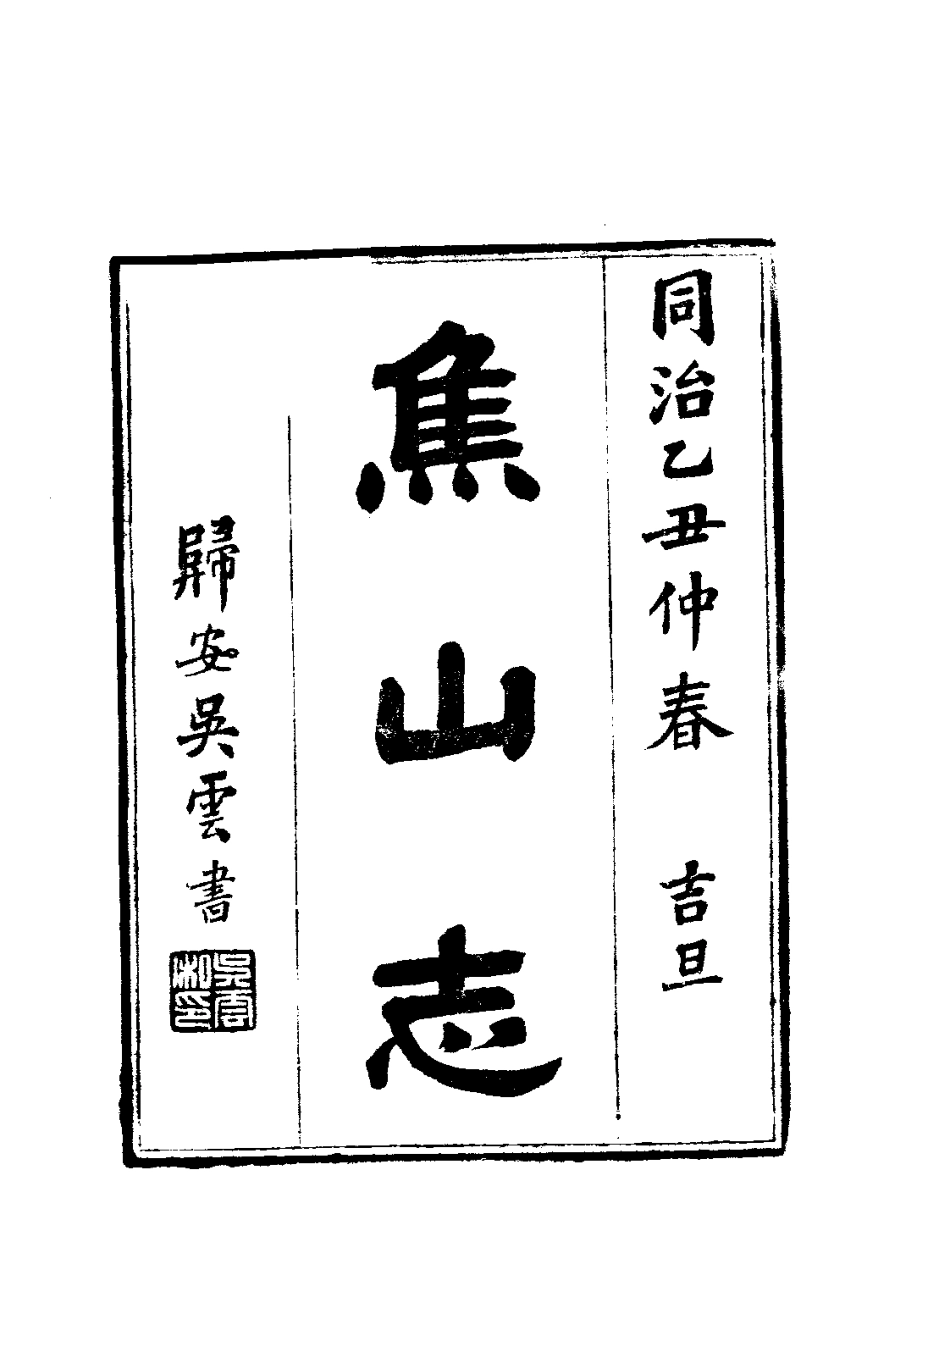 同治乙丑仲春 吉旦
焦山志
歸安吳雲書
吳雲私印